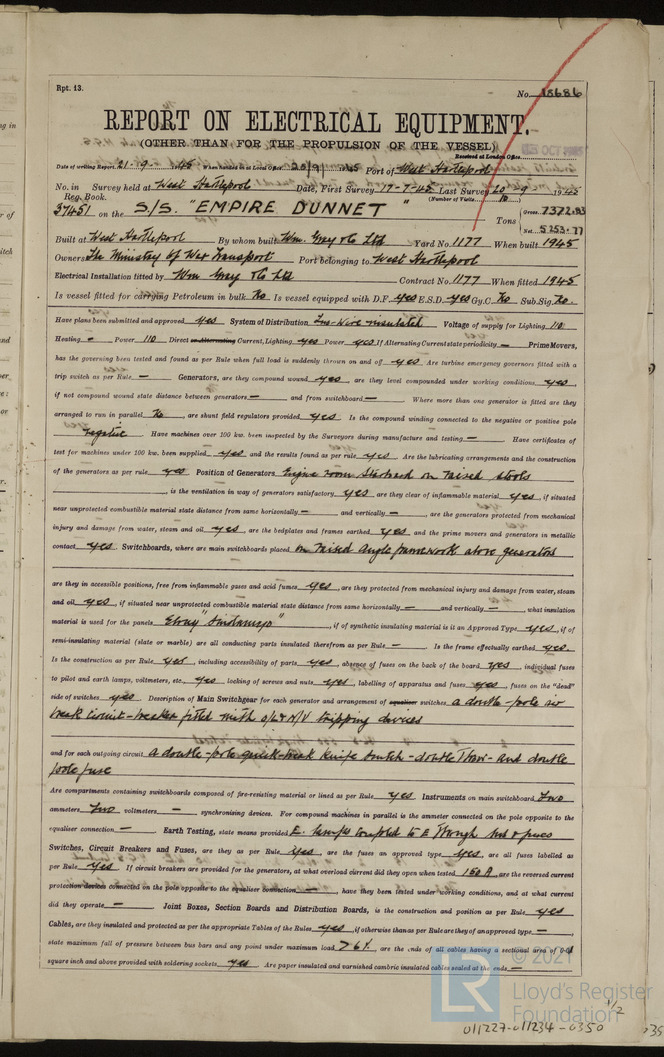 Rpt. 13.
No. 15686
REPORT ON ELECTRICAL EQUIPMENT.
(OTHER THAN FOR THE PROPULSION OF THE VESSEL)
Received at London Office
OCT 1945
Date of writing Report 21-9-45 When handed in at Local Office 25/9/45 Port of West Hartlepool
No. in Survey held at West Hartlepool Date, First Survey 17-7-45 Last Survey 20-9-1945
Reg. Book. (Number of Visits 10)
37451 on the S/S. "EMPIRE DUNNET" Tons Gross 7372.93
Net 5253.77
Built at West Hartlepool By whom built Wm. Gray & Co Ltd Yard No. 1177 When built 1945
Owners The Ministry of War Transport Port belonging to West Hartlepool
Electrical Installation fitted by Wm Gray & Co Ltd Contract No. 1177 When fitted 1945
Is vessel fitted for carrying Petroleum in bulk No Is vessel equipped with D.F. yes E.S.D. yes Gy.C. No Sub.Sig. No.
Have plans been submitted and approved yes System of Distribution Two-Wire insulated Voltage of supply for Lighting 110
Heating - Power 110 Direct or Alternating Current, Lighting yes Power yes If Alternating Current state periodicity - Prime Movers,
has the governing been tested and found as per Rule when full load is suddenly thrown on and off yes Are turbine emergency governors fitted with a
trip switch as per Rule - Generators, are they compound wound yes, are they level compounded under working conditions yes,
if not compound wound state distance between generators - and from switchboard - Where more than one generator is fitted are they
arranged to run in parallel No, are shunt field regulators provided yes Is the compound winding connected to the negative or positive pole
negative Have machines over 100 kw. been inspected by the Surveyors during manufacture and testing - Have certificates of
test for machines under 100 kw. been supplied yes and the results found as per rule yes Are the lubricating arrangements and the construction
of the generators as per rule yes Position of Generators Engine room Starboard on raised stools
, is the ventilation in way of generators satisfactory yes are they clear of inflammable material yes, if situated
near unprotected combustible material state distance from same horizontally - and vertically -, are the generators protected from mechanical
injury and damage from water, steam and oil yes, are the bedplates and frames earthed yes and the prime movers and generators in metallic
contact yes Switchboards, where are main switchboards placed on raised angle framework above generators
are they in accessible positions, free from inflammable gases and acid fumes yes, are they protected from mechanical injury and damage from water, steam
and oil yes, if situated near unprotected combustible material state distance from same horizontally - and vertically -, what insulation
material is used for the panels Ebony "Sindanyo", if of synthetic insulating material is it an Approved Type yes, if of
semi-insulating material (slate or marble) are all conducting parts insulated therefrom as per Rule - Is the frame effectually earthed yes
Is the construction as per Rule yes, including accessibility of parts yes, absence of fuses on the back of the board yes, individual fuses
to pilot and earth lamps, voltmeters, etc. yes locking of screws and nuts yes, labelling of apparatus and fuses yes, fuses on the "dead"
side of switches yes Description of Main Switchgear for each generator and arrangement of equaliser switches a double-pole air
break circuit-breaker fitted with o/L & N/V tripping devices
and for each outgoing circuit a double-pole quick-break knife switch - double throw - and double
pole fuse
Are compartments containing switchboards composed of fire-resisting material or lined as per Rule yes Instruments on main switchboard Two
ammeters Two voltmeters - synchronising devices. For compound machines in parallel is the ammeter connected on the pole opposite to the
equaliser connection - Earth Testing, state means provided E. lamps coupled to E through sws & fuses
Switches, Circuit Breakers and Fuses, are they as per Rule yes, are the fuses an approved type yes, are all fuses labelled as
per Rule yes If circuit breakers are provided for the generators, at what overload current did they open when tested 150 A are the reversed current
protection devices connected on the pole opposite to the equaliser connection -, have they been tested under working conditions, and at what current
did they operate - Joint Boxes, Section Boards and Distribution Boards, is the construction and position as per Rule yes
Cables, are they insulated and protected as per the appropriate Tables of the Rules yes, if otherwise than as per Rule are they of an approved type -
state maximum fall of pressure between bus bars and any point under maximum load > 6%, are the ends of all cables having a sectional area of 0.04
square inch and above provided with soldering sockets yes Are paper insulated and varnished cambric insulated cables sealed at the ends -
© 2021
LR
Lloyd's Register
Foundation
1/2
011227-011234-0350